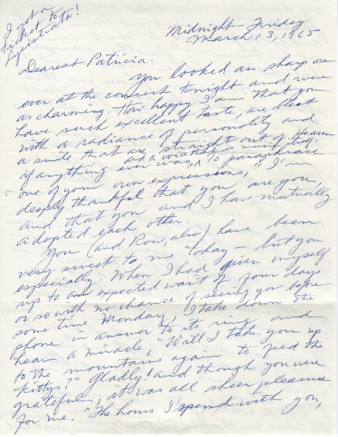 I got a
ticket to
Lysistrata!
Midnight - Friday
March 13, 1965
Dearest Patricia:
You looked as sharp as
ever at the concert tonight and were
as charming. How happy I am that you
have such excellent taste, are blest
with a radiance of personality and
a smile that are straight out of Heaven
and a voice that is music
if anything ever was, to paraphrase
one of your own expressions, "I'm
deeply thankful that you are you,
and that you and I have mutually
adopted each other.
You (and Ron, also) have been
very sweet to me today - but you
especially. When I had given myself
up to an expected wait of four days
or so with no chance of seeing you before
some time Monday, I take down the
phone in answer to its ring and
hear a miracle, "Will I take you up
to the mountains again to feed the
kitty?" Gladly! and though you were
grateful, it was all sheer pleasure
for me. "The hours I spend with you,